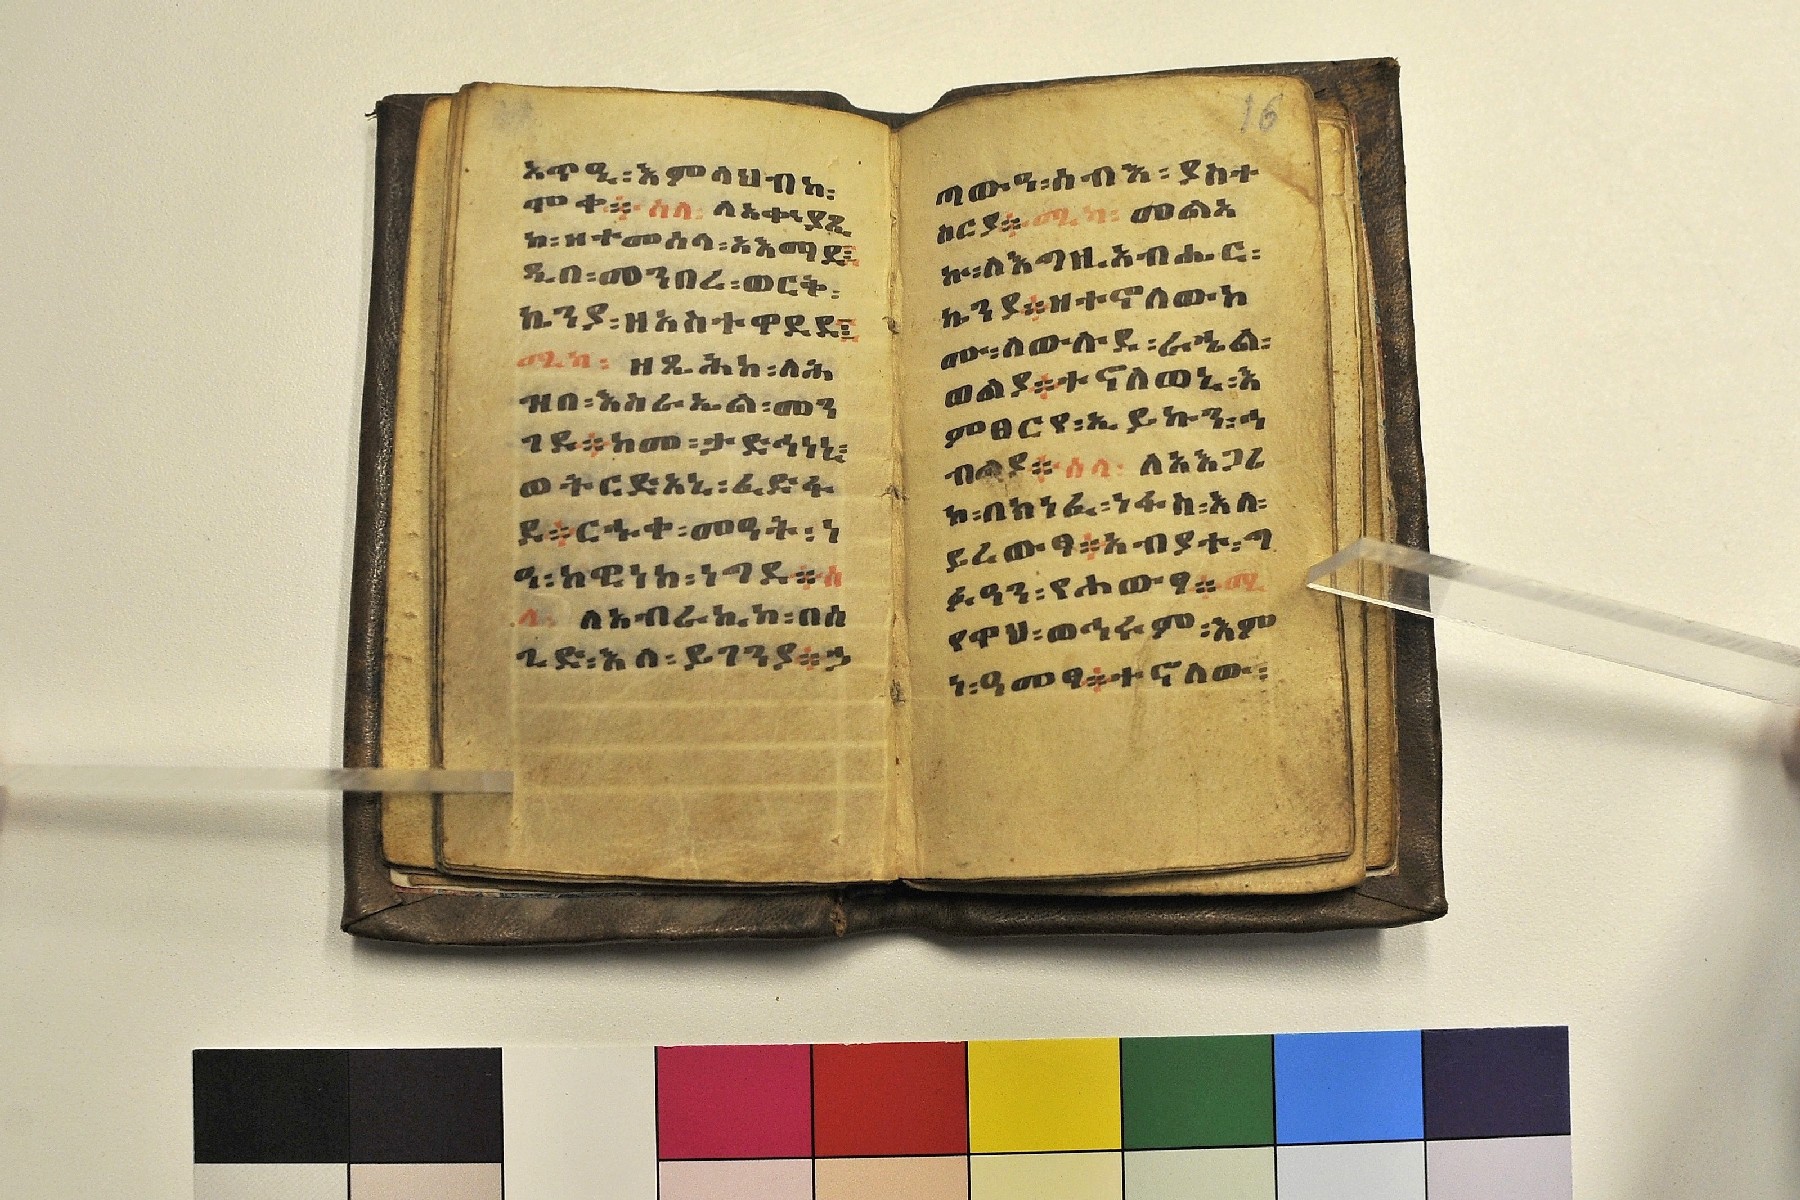 አጥዒ፡እምላህብከ፡
ሞቱ። ሰላ፡ ለአቁያጺ
ከ፡ዘተመሰላ፡አእማደ፤
ዲበ፡መንበረ፡ወርቅ፡
ኬንያ፡ዘአስተዋደደ፤
ሚካ፡ ዘጼሕከ፡ለሕ
ዝበ፡እስራኤል፡መን
ገደ።ከመ፡ታድኅነኒ፡
ወትርድአኒ፡ፈድፋ
ደ።ርኁቀ፡መዓት፡ነ
ዓ፡ከዊነከ፡ነግደ።ሰ
ላ፡ ለአብራኪከ፡በሰ
ጊድ፡እለ፡ይገንያ።ኃ
16
ጣውዓ፡ሰብእ፡ያስተ
ሰርያ።ሚካ፡ መልአ
ኩ፡ለእግዚአብሔር፡
ኬንያ።ዘተኖለውከ
ሙ፡ለውሉደ፡ራሔል፡
ወልያ።ተኖለወኒ፡እ
ምፀርየ፡ኢይኩን፡ኀ
ብልያ።ሰላ፡ ለአእጋሪ
ከ፡በክነፈ፡ነፋስ፡እለ፡
ይረውፃ።አብያተ፡ግ
ፉዓን፡የሐውፃ።ሚ
የዋህ፡ወኄሩም፡እም
ነ፡ዓመፃ።ተኖለው፡